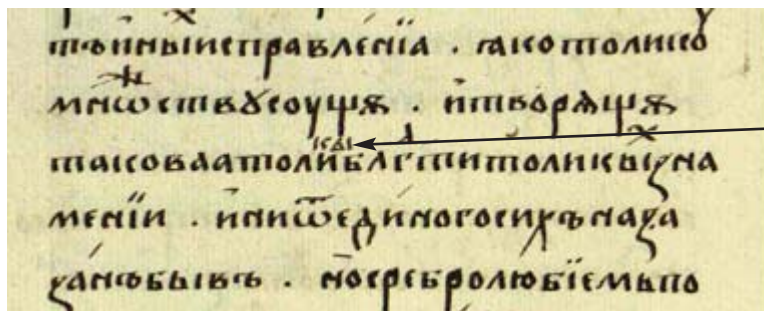 тъйныисправленїа . ꙗкотолико
мнѡ́ствꙋсоущѧ . и҆творѧщѧ
таковааатоликыблгⷣтитоликы́ⷯзна
менїи . и҆ниѿеди́ногосихънака
за́нъбывъ . но҆сребролю́бїемьпо